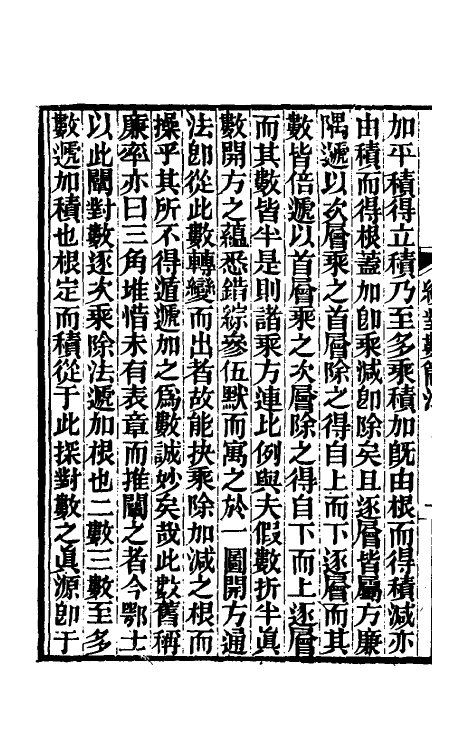 加平積得立積乃至多乘積加旣由根而得積減亦
由積而得根蓋加卽乘減卽除矣且逐層皆屬方廉
隅遞以次層乘之首層除之得自上而下逐層而其
數皆倍遞以首層乘之次層除之得自下而上逐層
而其數皆半是則諸乘方連比例與夫假數折半眞
數開方之蘊悉錯綜參伍默而寓之於一圖開方通
法卽從此數轉變而出者故能抉乘除加減之根而
操乎其所不得遁遞加之爲數誠妙矣哉此數舊稱
廉率亦曰三角堆惜未有表章而推闡之者今鄂士
以此闡對數逐次乘除法遞加根也二數三數至多
數遞加積也根定而積從于此探對數之眞源卽于